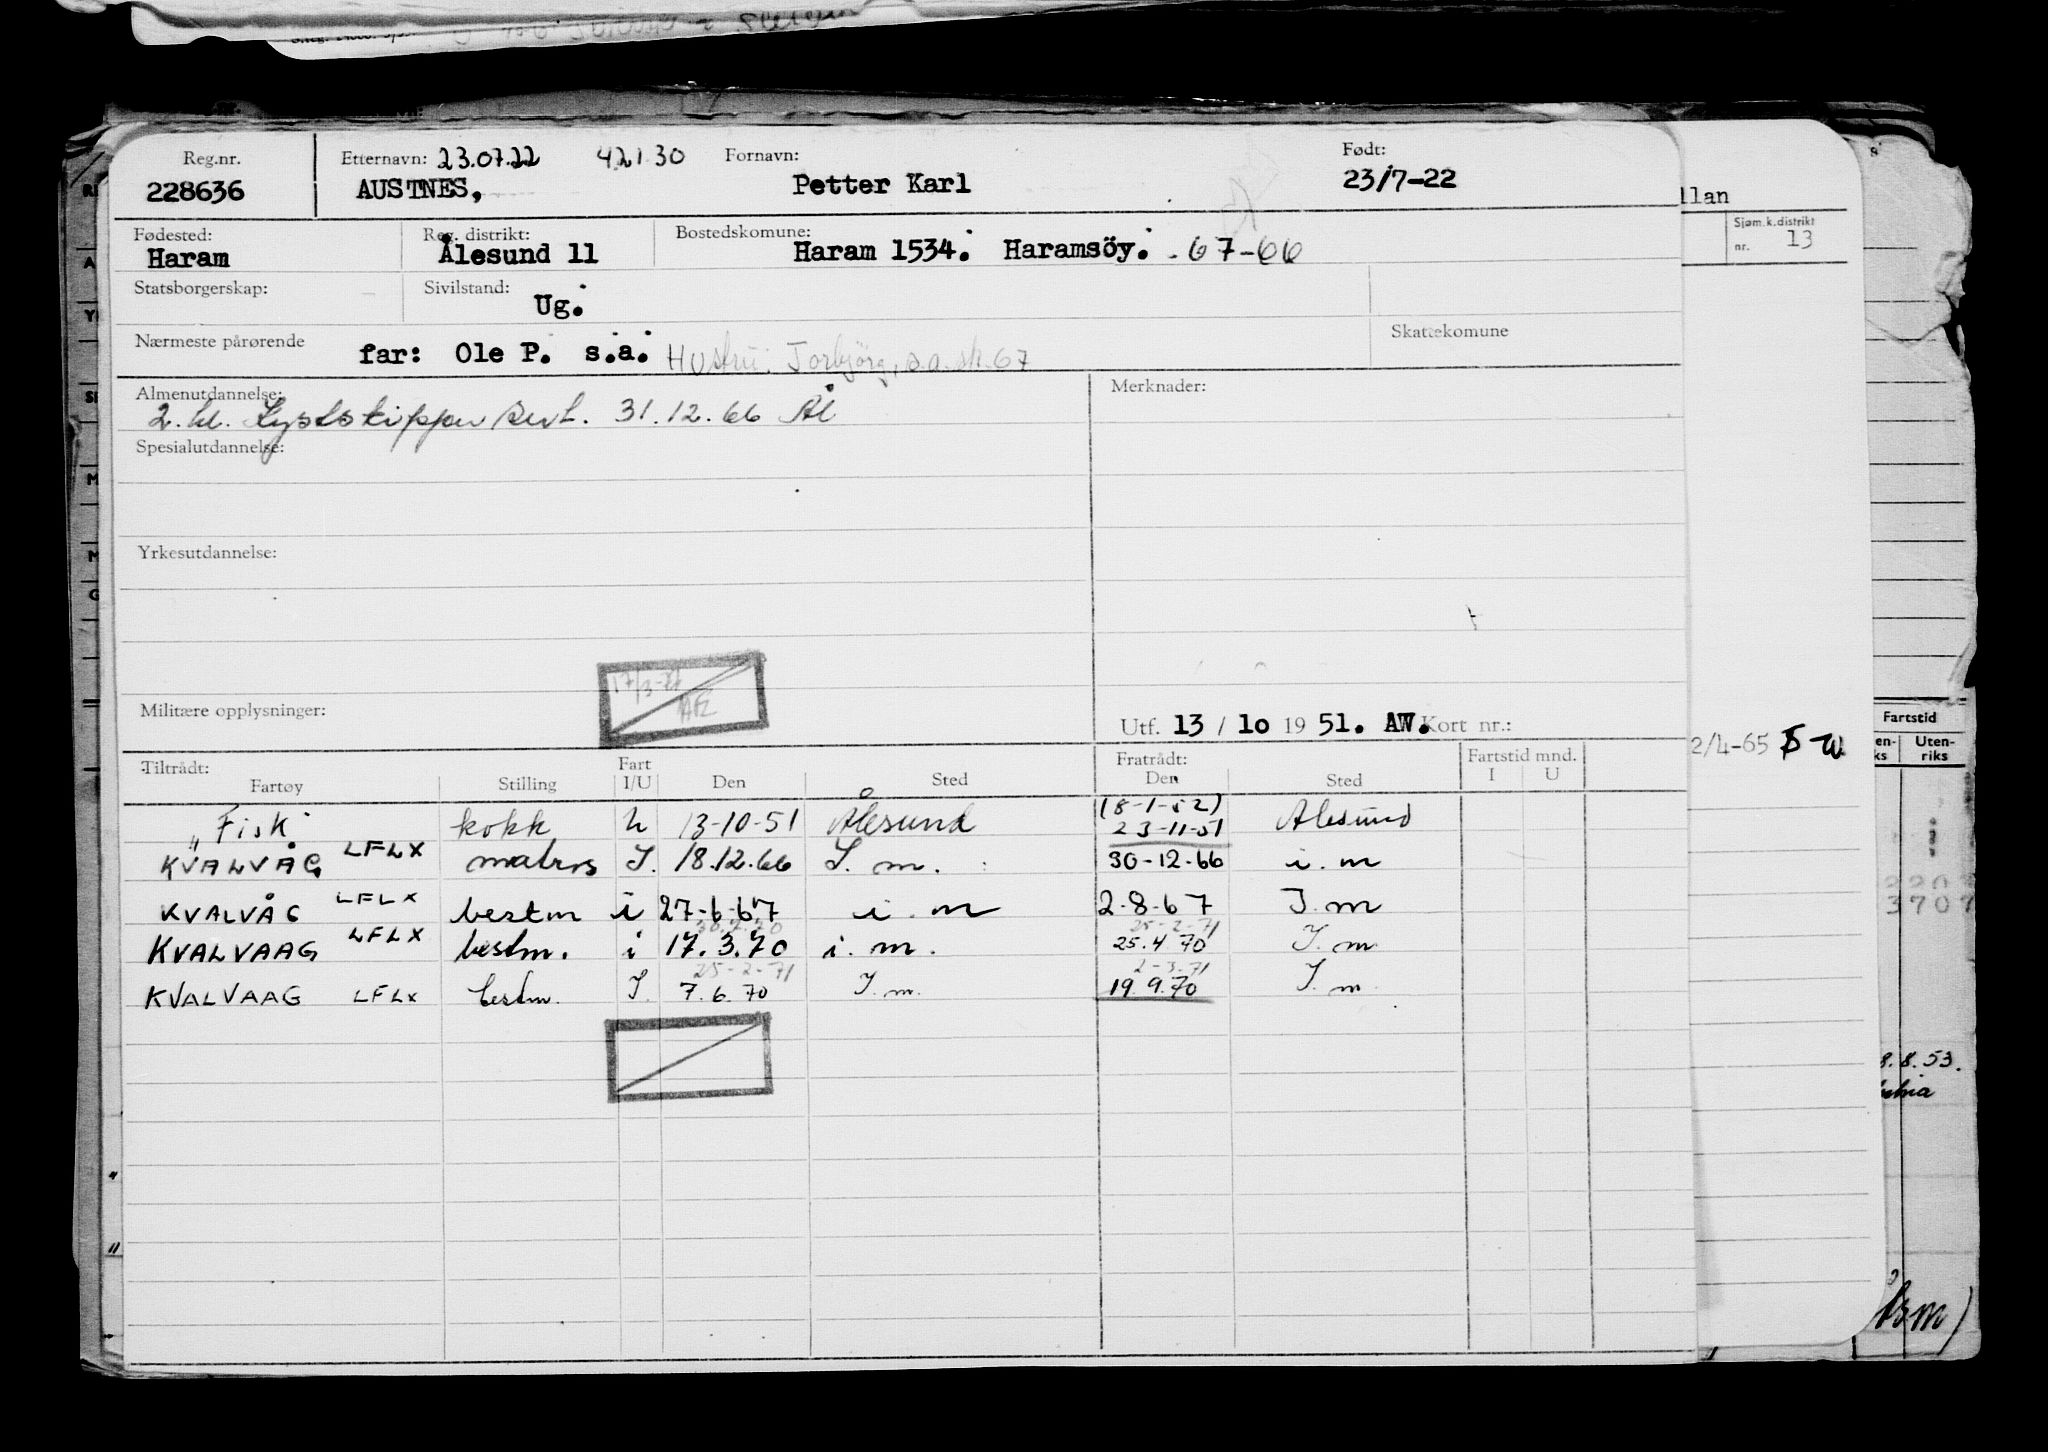 Reg.nr. Etternavn: 23.07.22 42130 Fornavn: Født:
228636 AUSTNES, Petter Karl 23/7-22
Fødested: Reg. distrikt: Bostedskomune:
Haram Ålesund 11 Haram 1534. Haramsöy. 67-66
Statsborgerskap: Sivilstand:
Ug.
Nærmeste pårørende Skattekomune
far: Ole P. s.a. Hustru: Torbjörg, s.a. sk. 67
Almenutdannelse: Merknader:
2. kl. Kystskipper sert. 31.12.66 Ål
Spesialutdannelse:
Yrkesutdannelse:
17/3-71
Militære opplysninger: Utf. 13 / 10 19 51. AW. Kort nr.:
Tiltrådt: Fart Fratrådt: Fartstid mnd.
Fartøy Stilling I/U Den Sted Den Sted I U
(8-1-52)
"Fisk" kokk u 13-10-51 Ålesund 23-11-51 Ålesund
KVALVÅG LFLX matros I. 18.12.66 I. m. 30-12-66 i. m
KVALVÅG LFLX bestm i 27-6-67 i. m 2-8-67 I. m
25-2-71
KVALVAAG LFLX bestm. i 17.3.70 i. m. 25.4 70 I. m.
25-2-71 2-3.71
KVALVAAG LFLX bestm. I. 7.6.70 I. m. 19.9.70 I. m.
llan
Sjøm.k.distrikt
nr. 13
2/4-65
Fartstid
en-
ks
Uten-
riks
3707
8.8.53.